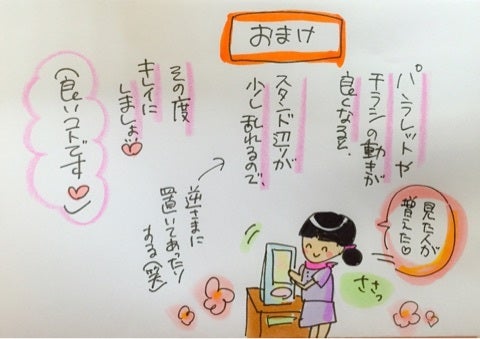 おまけ
パンフレットや
チラシの動きが
良くなると、
スタンド辺りが
少し乱れるので、
その度
キレイに
しましょ♡
(良いコトです♡)
逆さまに
置いてあったり
する(笑)
見た人が
増えた♡
ささっ